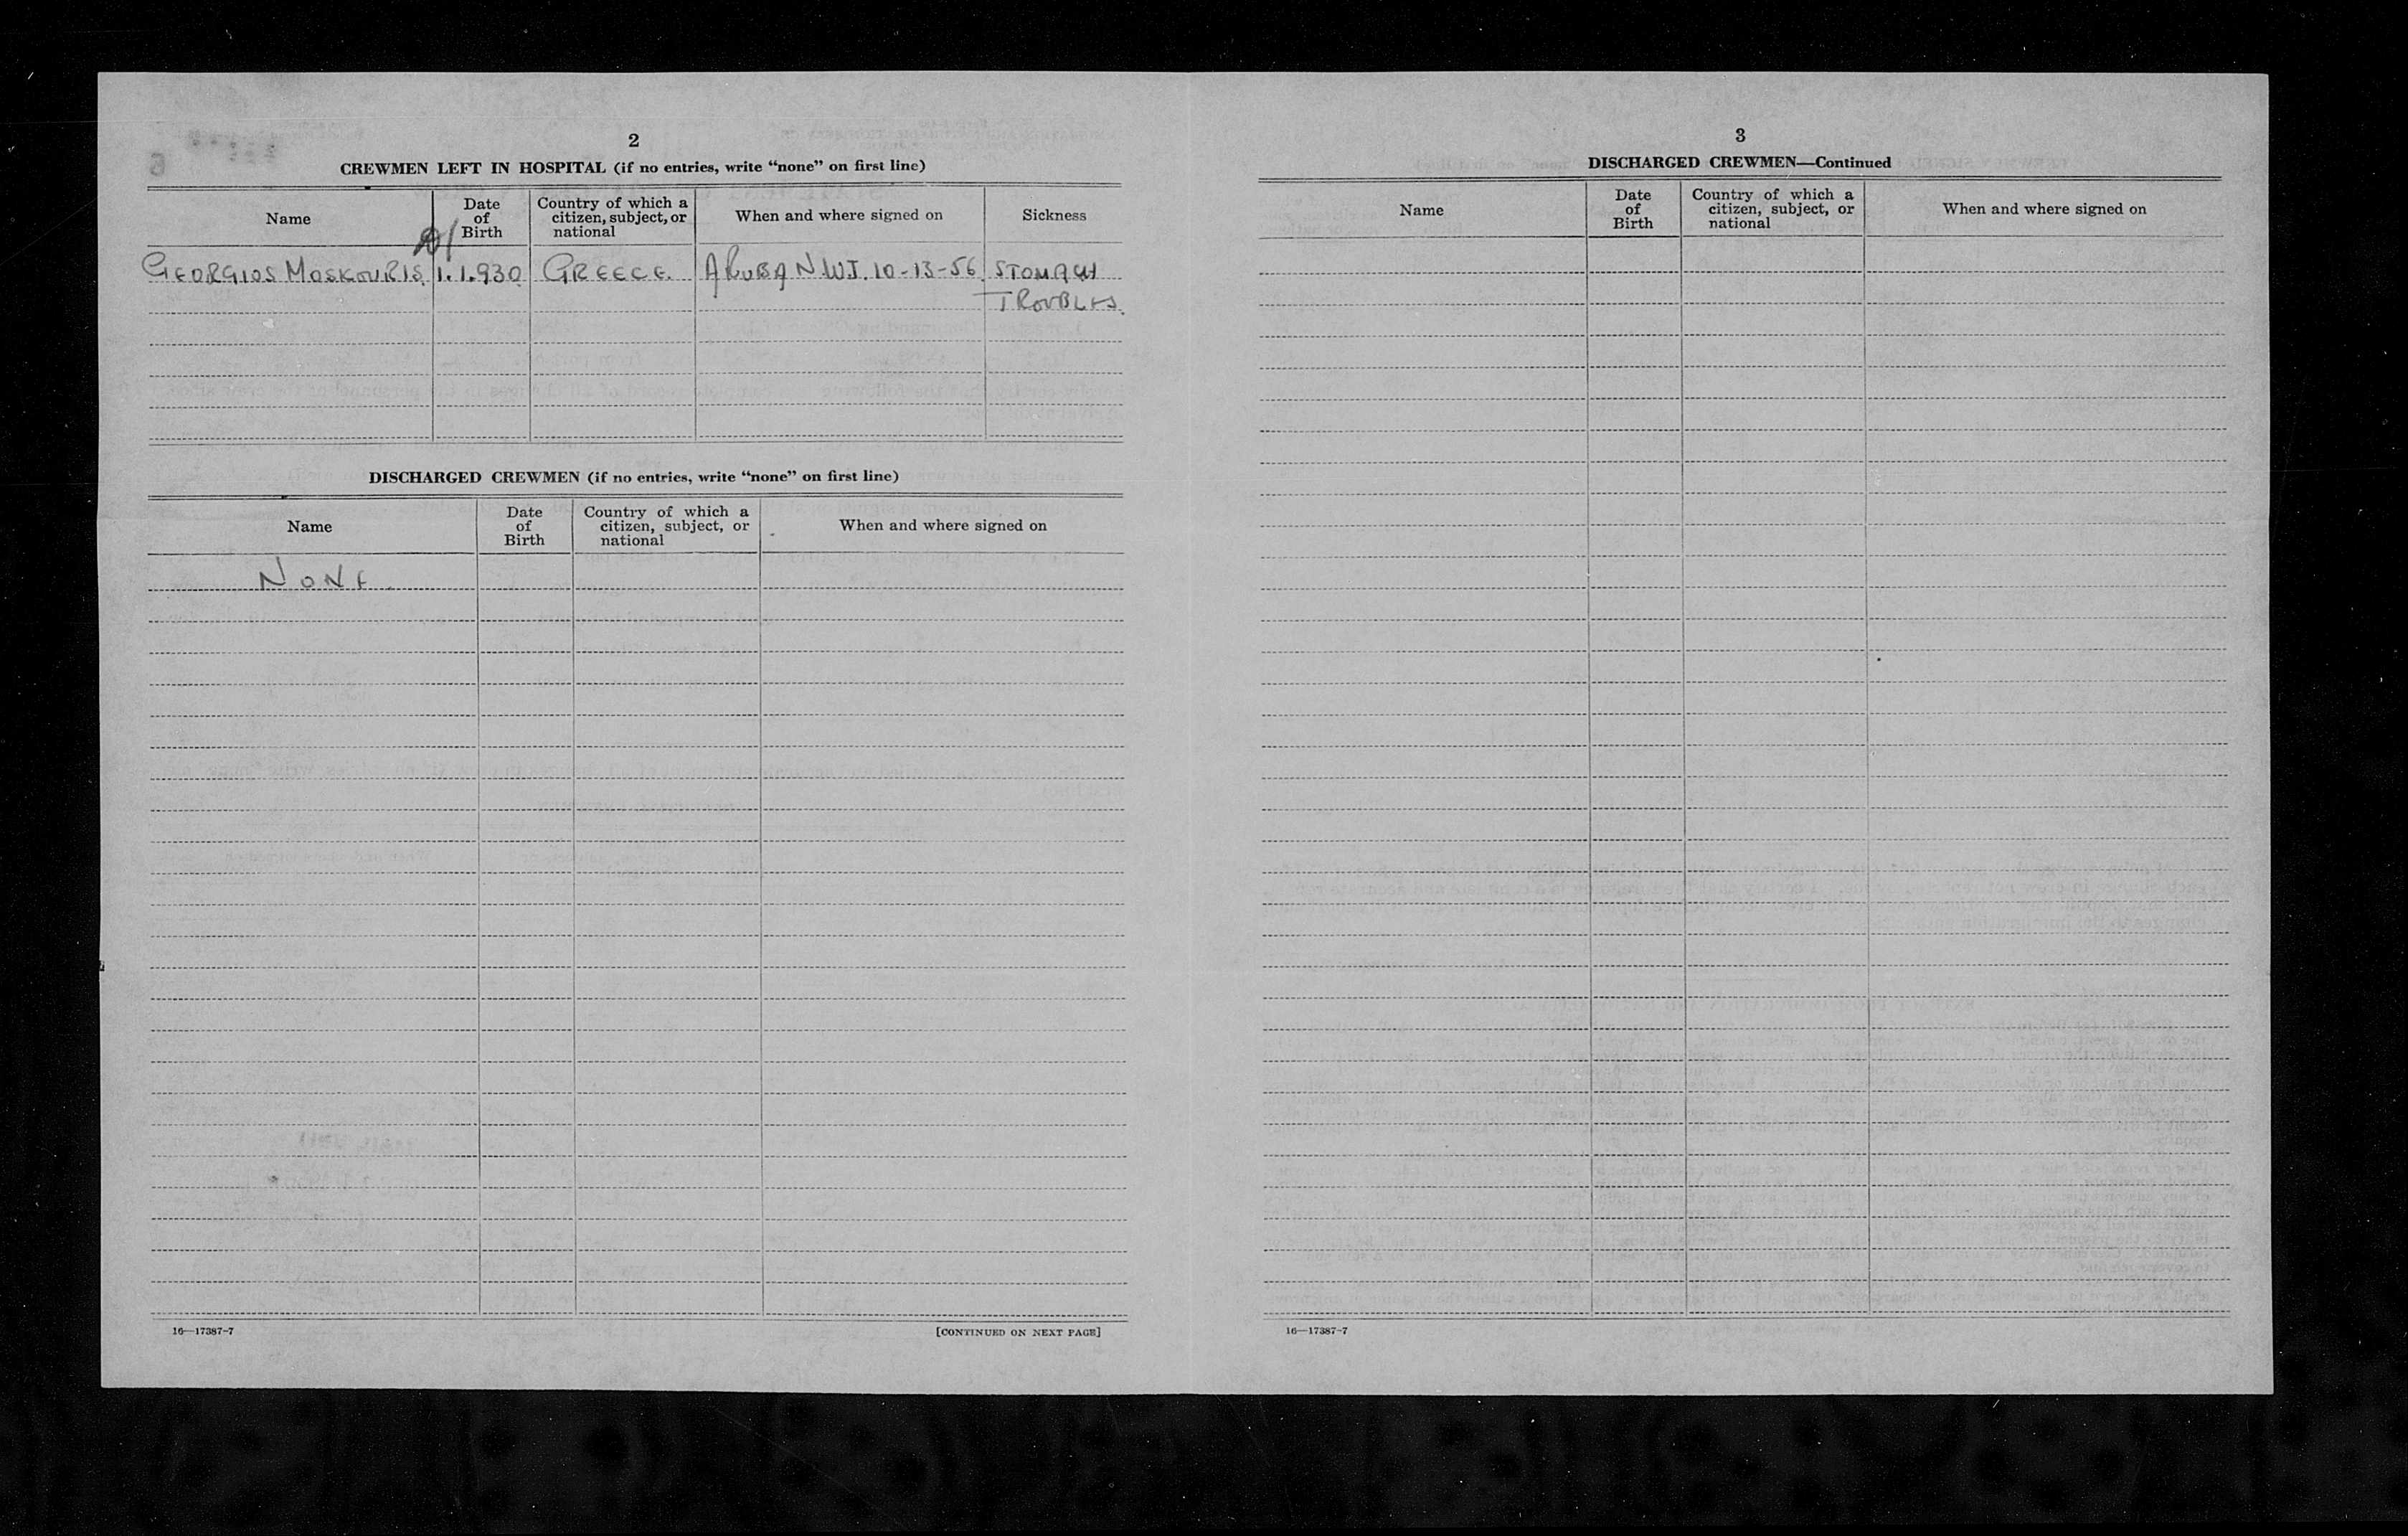 2
CREWMEN LEFT IN HOSPITAL (if no entries, write “none” on first line)
Name Date of Birth Country of which a citizen, subject, or national When and where signed on Sickness
GEORGIOS MOSKOURIS 1.1.930 GREECE. ARUBA N.W.I. 10-13-56 STOMACH
TROUBLES.
DISCHARGED CREWMEN (if no entries, write “none” on first line)
Name Date of Birth Country of which a citizen, subject, or national When and where signed on
NONE.
16—17387-7 [CONTINUED ON NEXT PAGE]
3
DISCHARGED CREWMEN—Continued
Name Date of Birth Country of which a citizen, subject, or national When and where signed on
16—17387-7